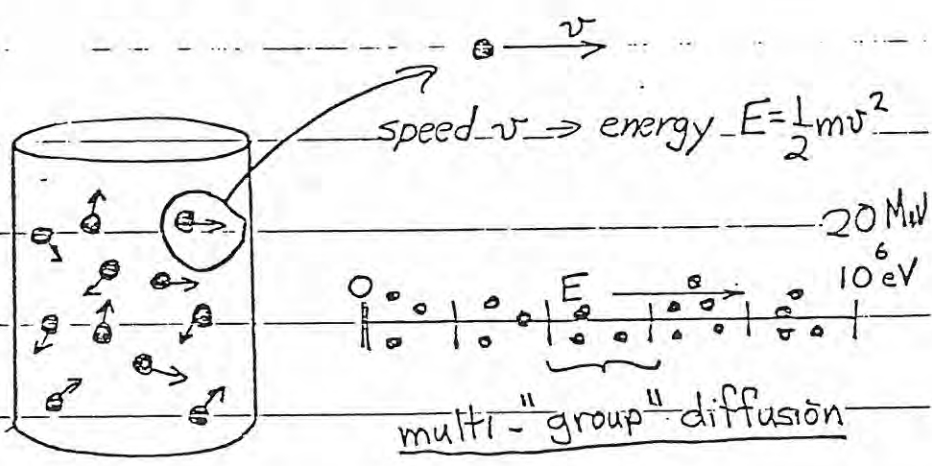 v
speed v ⇒ energy E = ½mv²
20 MeV
10⁶ eV
O E
multi-"group" diffusion